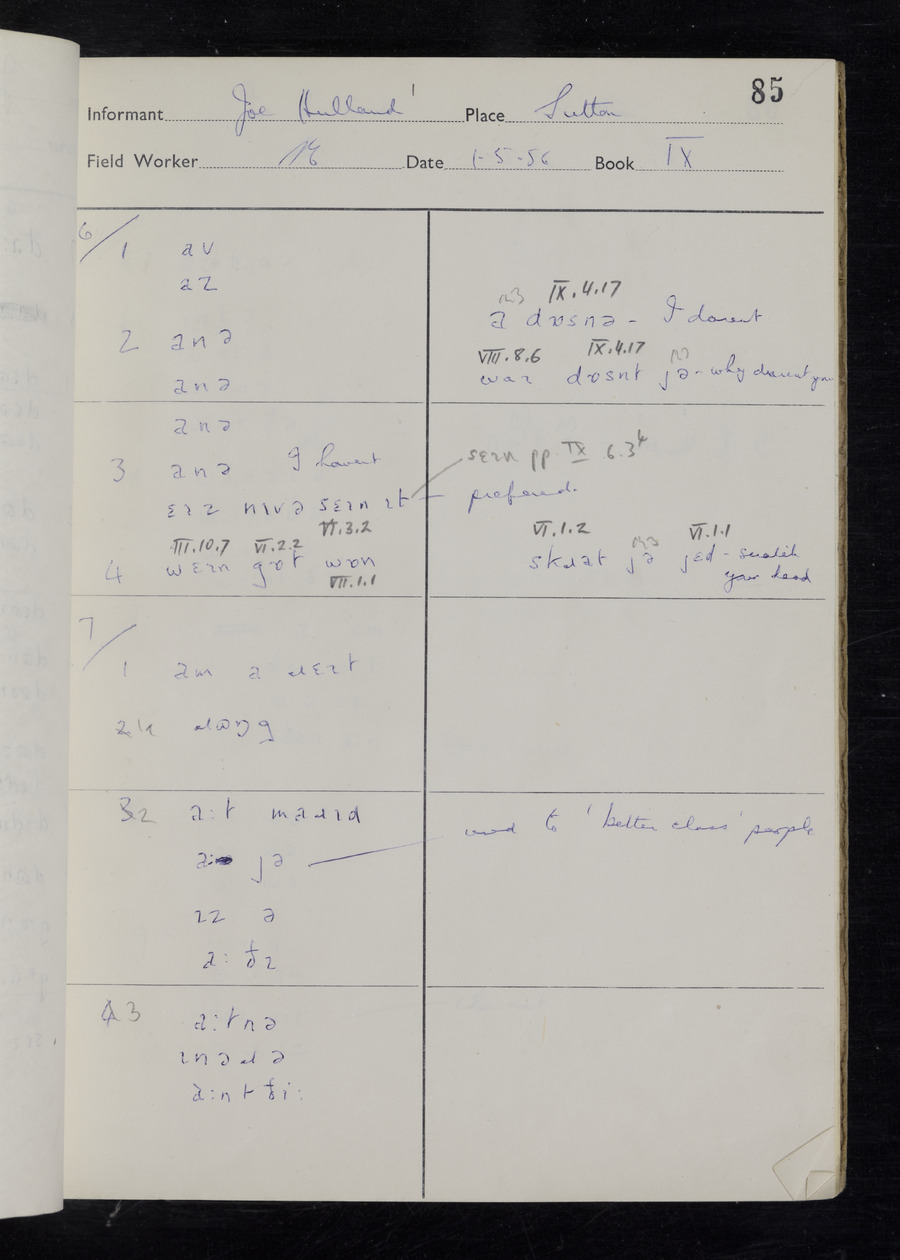 85
Informant Joe Hulland Place Sutton
Field Worker Date 1-5-56 Book IX
6/
1 av
az
IX.4.17
a dɒsnə - I daren't
2 anə
VIII.8.6 IX.4.17
waɪ dɒsnt jə - why daren't you
anə
anə
3 anə I haven't
sɛɪn pp IX 6.3
ɛɪz nɪvə sɛɪn ɪt - preferred.
VI.3.2
III.10.7 VI.2.2
4 wɛɪn gɒt wɒn
VII.1.1
VI.1.2 VI.1.1
skɹat jə jɛd - scratch
your head
7/
1 am a ɹɛɪt
2 ɹɒŋg
2 a:t maɹɪd
jə used to 'better class' people
ɪz ə
a: ðɪ
3 a:tnə
ɪnəɹə
a:nt ði: